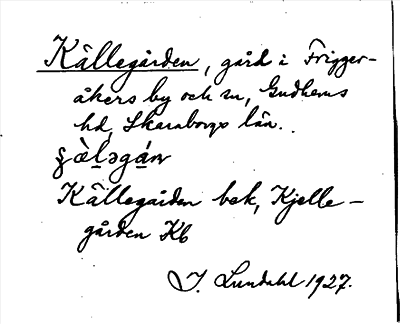 Källegården, gård i Frigger-
åkers by och sn, Gudhems
hd, Skaraborgs län.
Källegården bek, Kjelle-
gården Kb
I. Lundahl 1927.